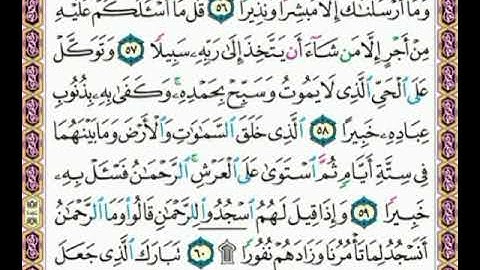 وَمَا أَرْسَلْنَاكَ إِلَّا مُبَشِّرًا وَنَذِيرًا ٥٦ قُلْ مَا أَسْئَلُكُمْ عَلَيْهِ
مِنْ أَجْرٍ إِلَّا مَن شَاءَ أَن يَتَّخِذَ إِلَىٰ رَبِّهِ سَبِيلًا ٥٧ وَتَوَكَّلْ
عَلَى الْحَيِّ الَّذِي لَا يَمُوتُ وَسَبِّحْ بِحَمْدِهِ ۚ وَكَفَىٰ بِهِ بِذُنُوبِ
عِبَادِهِ خَبِيرًا ٥٨ الَّذِي خَلَقَ السَّمَٰوَٰتِ وَالْأَرْضَ وَمَا بَيْنَهُمَا
فِي سِتَّةِ أَيَّامٍ ثُمَّ اسْتَوَىٰ عَلَى الْعَرْشِ ۚ الرَّحْمَٰنُ فَسْئَلْ بِهِ
خَبِيرًا ٥٩ وَإِذَا قِيلَ لَهُمُ اسْجُدُوا لِلرَّحْمَٰنِ قَالُوا وَمَا الرَّحْمَٰنُ
أَنَسْجُدُ لِمَا تَأْمُرُنَا وَزَادَهُمْ نُفُورًا ۩ ٦٠ تَبَارَكَ الَّذِي جَعَلَ